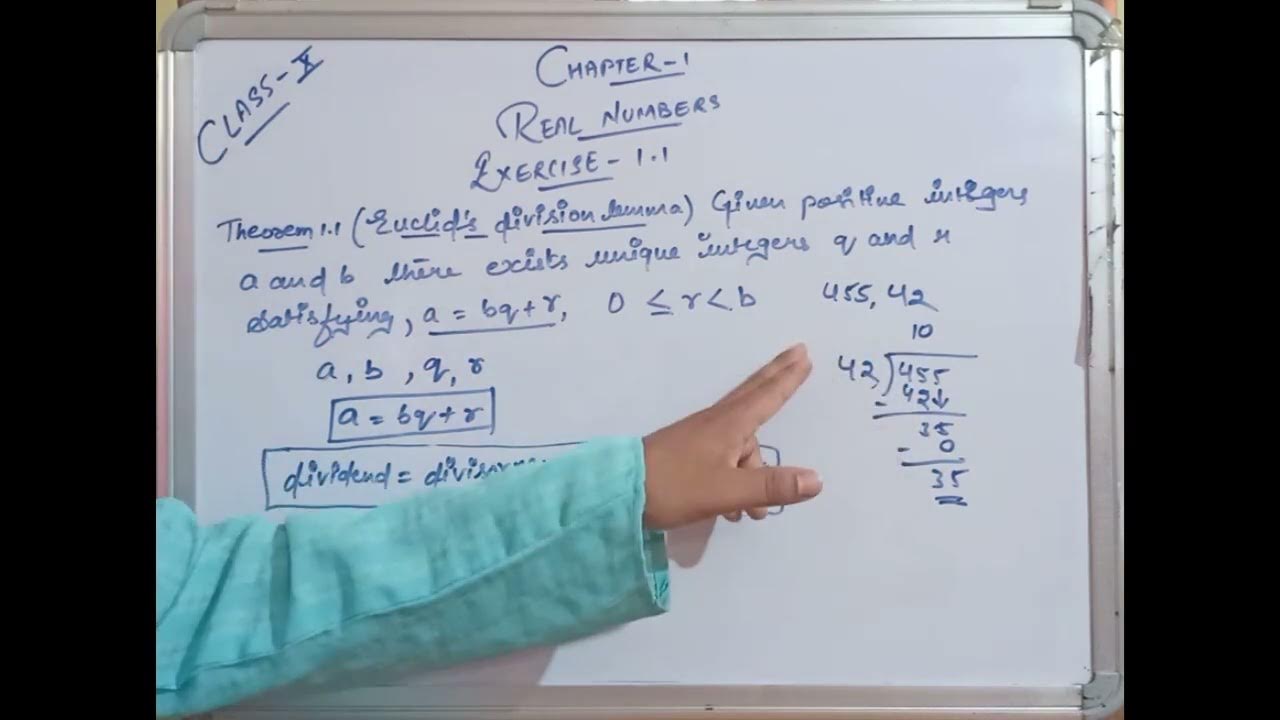 CLASS-X
CHAPTER-1
REAL NUMBERS
EXERCISE-1.1
Theorem 1.1 (Euclid's division lemma) Given positive integers
a and b there exists unique integers q and r
satisfying, a = bq + r, 0 ≤ r < b
a, b, q, r
a = bq + r
dividend = divisor
455, 42
10
42) 455
- 42↓
35
- 0
35